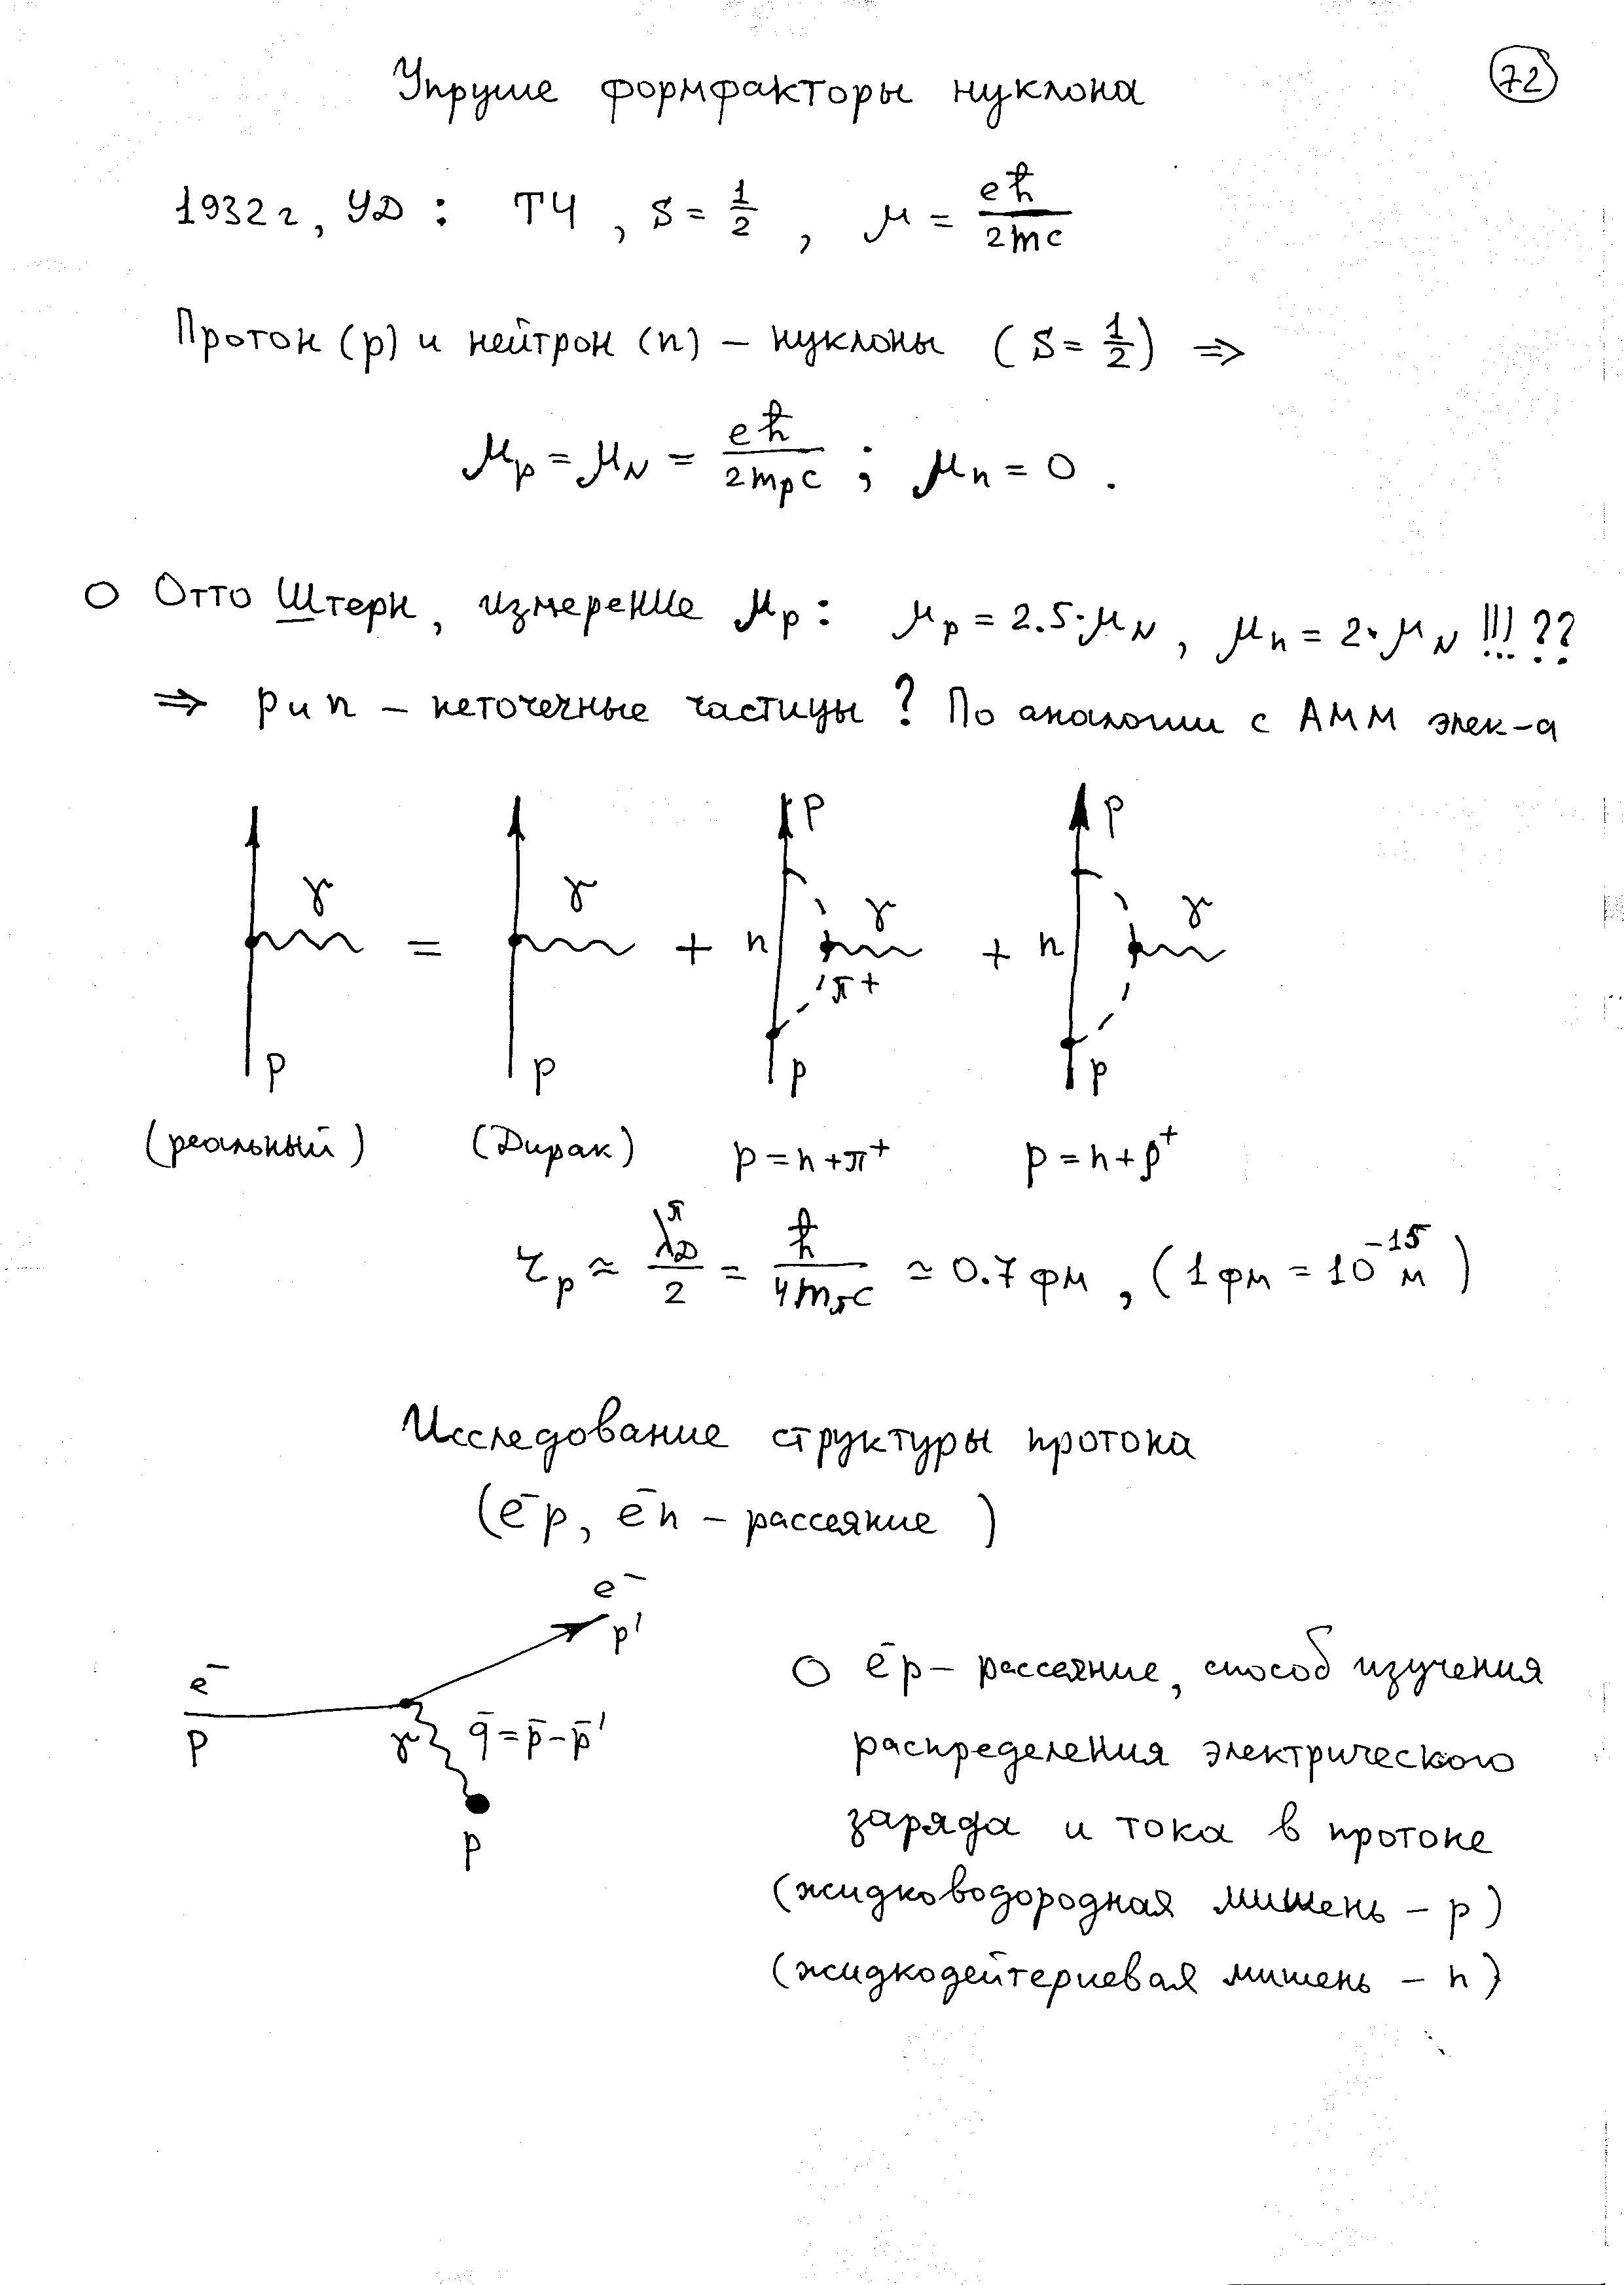 Упругие формфакторы нуклона
72
1932 г, УД : ТЧ , S = 1/2 , μ = eħ/2mc
Протон (p) и нейтрон (n) – нуклоны (S = 1/2) ⇒
μp = μN = eħ/2mpc ; μn = 0 .
○ Отто Штерн, измерение μp : μp = 2.5·μN , μn = 2·μN !!! ??
⇒ p и n – неточечные частицы ? По аналогии с АММ элек-а
p p
γ γ γ γ
= + n + n
π+
p p p p
(реальный) (Дирак) p = n + π⁺ p = n + ρ⁺
rp ≈ λDπ/2 = ħ/4mπc ≃ 0.7 фм , (1 фм = 10⁻¹⁵ м)
Исследование структуры протона
(e⁻p, e⁻n – рассеяние )
e⁻
p'
e⁻
p
γ q̄ = p̄ – p̄'
p
○ e⁻p – рассеяние, способ изучения
распределения электрического
заряда и тока в протоне
(жидководородная мишень – p)
(жидкодейтериевая мишень – n)